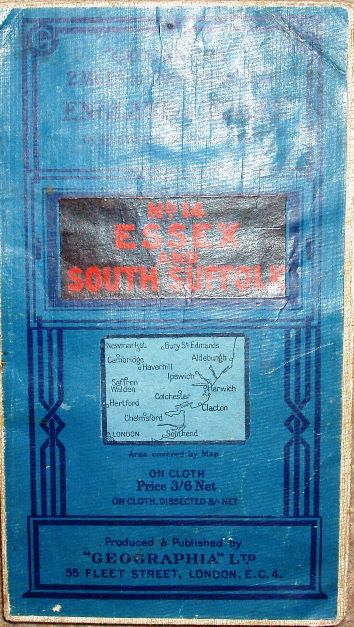 ENGLAND
Nº 14
ESSEX
AND
SOUTH SUFFOLK
Newmarket Bury St Edmunds
Cambridge Aldeburgh
Haverhill
Ipswich
Saffron
Walden Harwich
Colchester
Hertford Clacton
Chelmsford
LONDON Southend
Area covered by Map
ON CLOTH
Price 3/6 Net
ON CLOTH, DISSECTED 5/- NET
Produced & Published by
"GEOGRAPHIA" LTD
55 FLEET STREET, LONDON, E.C.4.